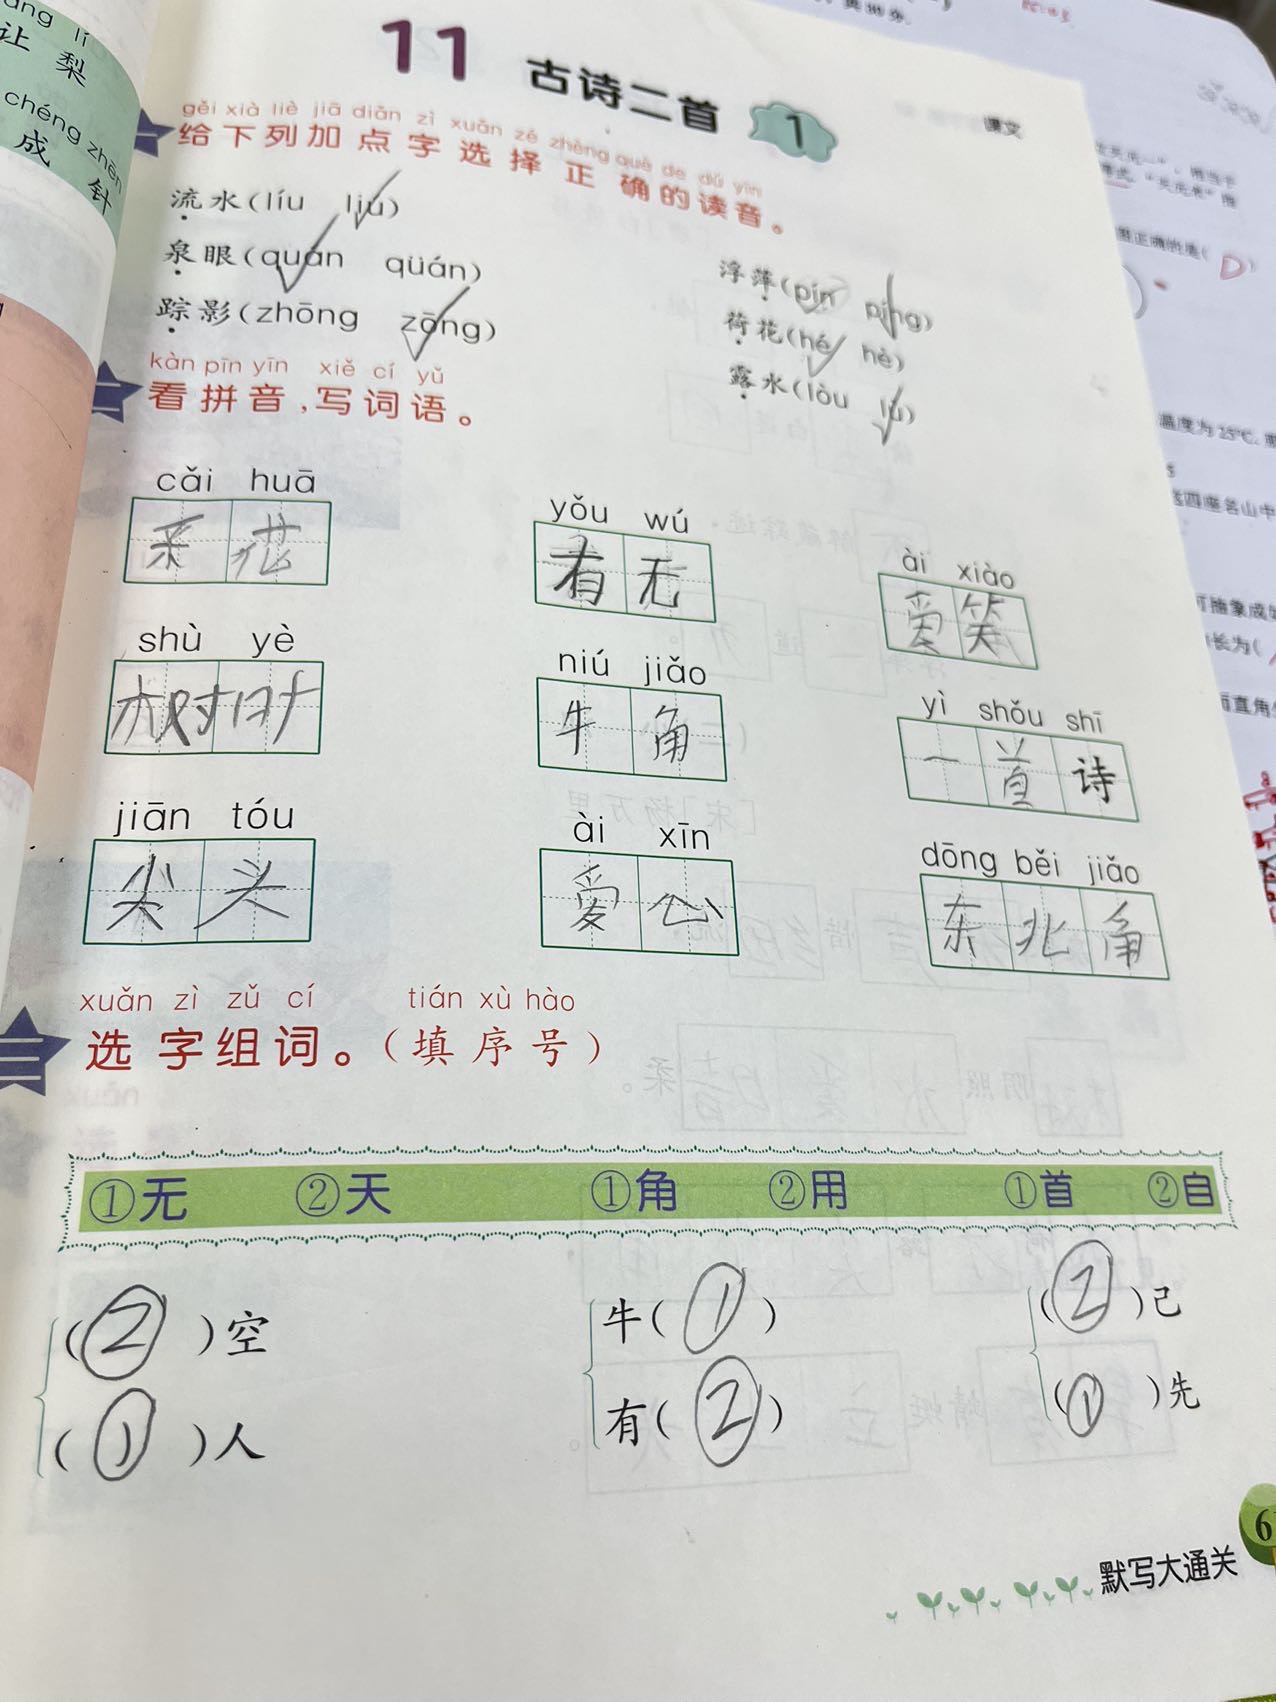 àng lí
让 梨
chéng zhēn
成 针
11 古诗二首 1
课文
gěi xià liè jiā diǎn zì xuǎn zé zhèng què de dú yīn
一 给下列加点字选择正确的读音。
流水(líu liú)
泉眼(quán qüán)
踪影(zhōng zōng)
浮萍(pín píng)
荷花(hé hè)
露水(lòu lù)
kàn pīn yīn xiě cí yǔ
二 看拼音,写词语。
cǎi huā
采花
yǒu wú
有无
ài xiào
爱笑
shù yè
树叶
niú jiǎo
牛角
yì shǒu shī
一首诗
jiān tóu
尖头
ài xīn
爱心
dōng běi jiǎo
东北角
xuǎn zì zǔ cí tián xù hào
三 选字组词。(填序号)
①无 ②天 ①角 ②用 ①首 ②自
(②)空 牛(①) (②)己
(①)人 有(②) (①)先
默写大通关